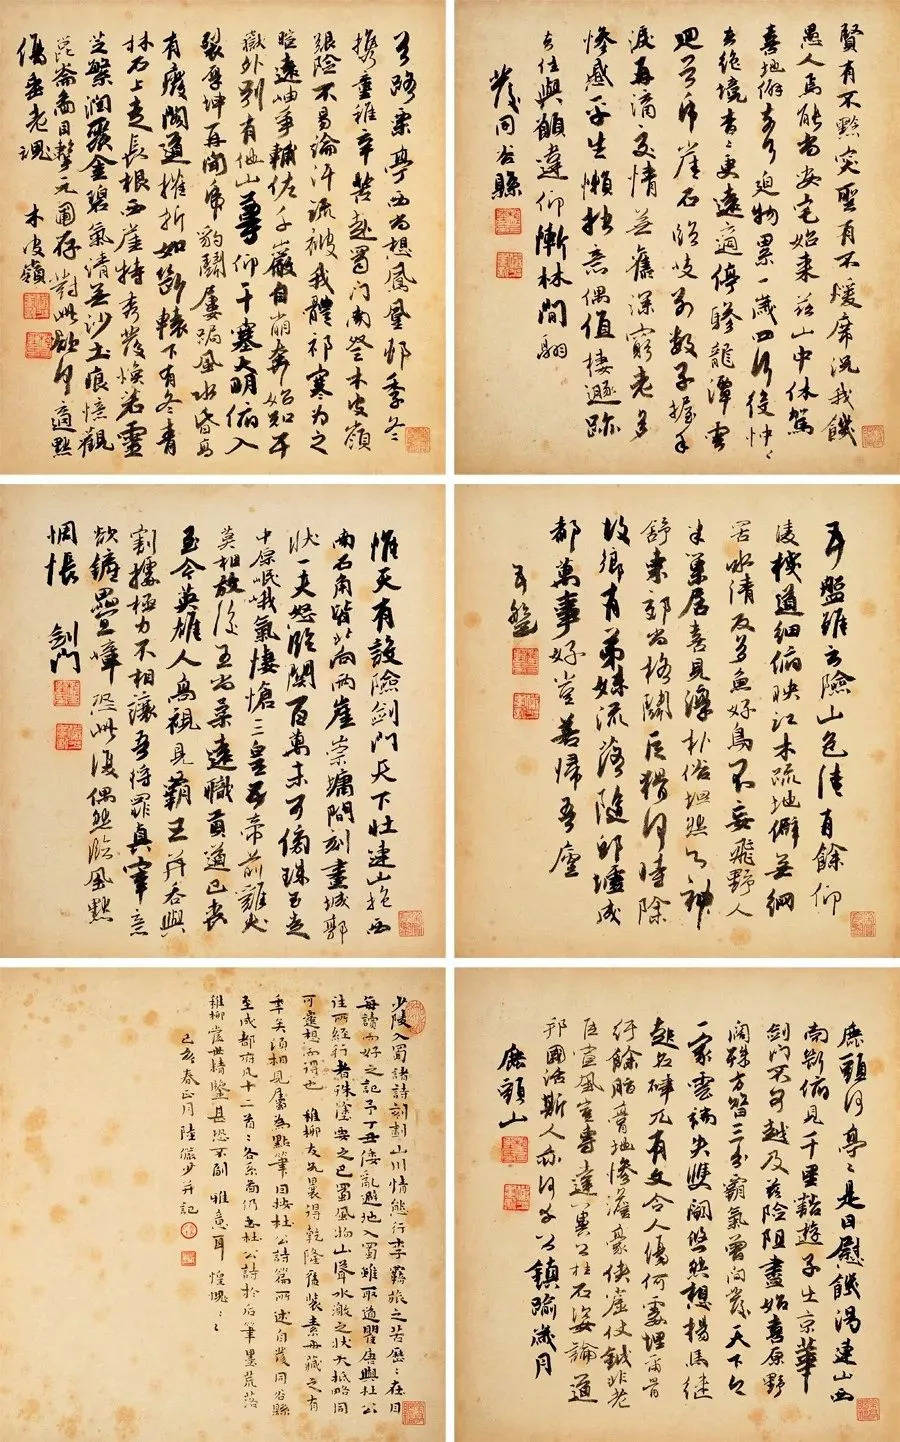 賢有不黔突聖有不煖席況我饑
愚人焉能尚安宅始來茲山中休駕
喜地僻奈何迫物累一歲四行役忡忡
去絕境杳杳更遠適停驂龍潭雲
迴首虎崖石臨岐別數子握手
淚再滴交情無舊深窮老多
慘慼平生懶拙意偶值棲遯跡
去住與願違仰慚林間翮
發同谷縣
首路栗亭西尚想鳳凰邨季冬
攜童稚辛苦赴蜀門南登木皮嶺
艱險不易論汗流被我體祁寒為之
暄遠岫爭輔佐千巖自崩奔始知五
嶽外別有他山尊仰干塞大明俯入
裂厚坤再聞虎豹鬭屢跼風水昏高
有廢閣道摧折如斷轅下有冬青
林石上走長根西崖特秀發煥若靈
芝繁潤聚金碧氣清無沙土痕憶觀
崑崙圖目擊元圃存對此欲何適默
傷垂老魂 木皮嶺
五盤雖云險山色佳有餘仰
凌棧道細俯映江木疏地僻無網
罟水清反多魚好鳥不妄飛野人
半巢居喜見淳朴俗坦然心神
舒東郊尚格鬭巨猾何時除
故鄉有弟妹流落隨邱墟成
都萬事好豈若歸吾廬
五盤
惟天有設險劍門天下壯連山抱西
南石角皆北向兩崖崇墉倚刻畫城郭
狀一夫怒臨關百萬未可傍珠玉走
中原岷峨氣悽愴三皇五帝前雞犬
莫相放後王尚柔遠職貢道已喪
至今英雄人高視見霸王并吞與
割據極力不相讓吾將罪真宰意
欲鏟疊嶂恐此復偶然臨風默
惆悵 劍門
鹿頭何亭亭是日慰饑渴連山西
南斷俯見千里豁遊子出京華
劍門不可越及茲險阻盡始喜原野
闊殊方昔三分霸氣曾間發天下今
一家雲端失雙闕悠然想楊馬繼
起名硉兀有文令人傷何處埋爾骨
紆餘脂膏地慘澹豪俠窟仗鉞非老
臣宣風豈專達冀公柱石姿論道
邦國活斯人亦何幸公鎮踰歲月
鹿頭山
少陵入蜀諸詩刻劃山川情態行李羈旅之苦歷歷在目
每讀而好之記予丁丑倭亂避地入蜀雖取道瞿唐與杜公
往所經行者殊塗要之巴蜀風物山聳水激之狀大抵略同
可遙想而得也 稚柳友兄裏得乾隆舊裝素冊藏之有
年矣頃相見屬為點筆因按杜公詩篇所述自發同谷縣
至成都府凡十二首各系而仍書杜公詩於后筆墨荒落
稚柳當世精鑒甚恐不副 雅意耳 惶愧惶愧
己亥春正月 陸儼少并記